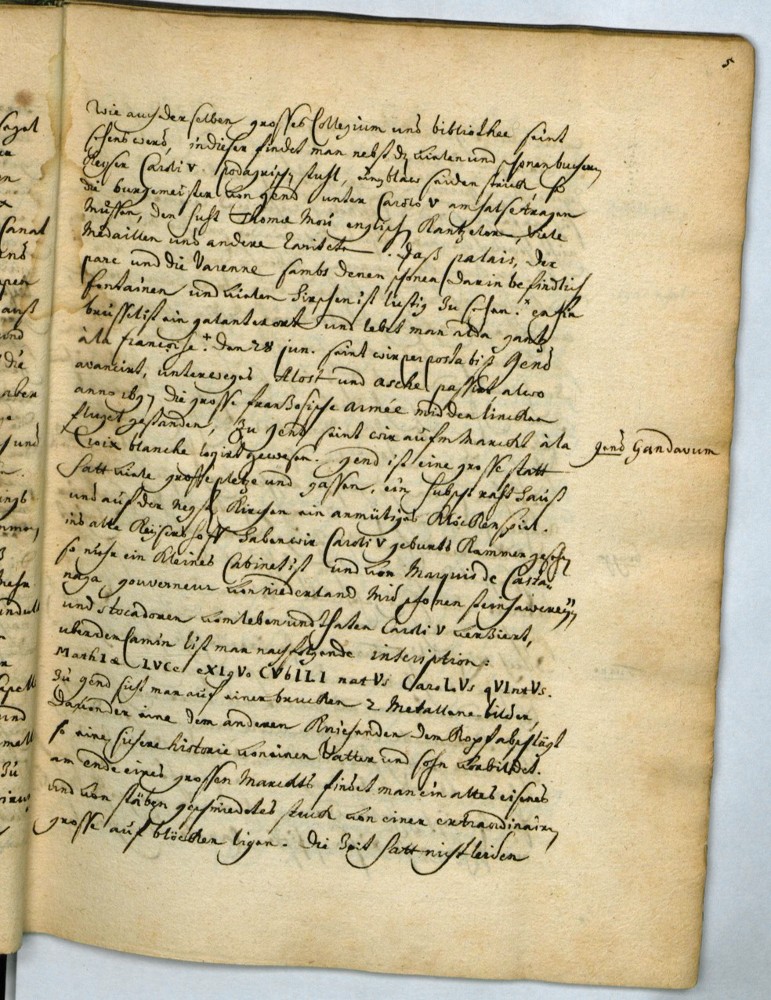 5
Wie auch derselben grosses Collegium und bibliothec seint
sehens werd, in dieser findet man nebst den vielen und schönen buchern
Keyser Caroli V. podagrisch stuhl, ein blaw seiden strick so
die burgemeister von gend unter Carolo V am halse tragen
müssen, den huht Thomæ Mori englisch Kantzelern, viele
Medaillen und andere rariteten. Daß palais, der
parc und die Varenne sambt denen schönen darin befindlich
fontainen und vielen hirschen ist lustig zu sehen.
brüssel ist ein galanter ort und lebet man alda gantz
à la françoise. Den 28 jun. seint wir per posta biß gend
avancirt, unterweges Alost und asche passirt, alwo
anno 1697 die grosse frantzosische armée mit den lincken
flugel gestanden, zu gend seint wir aufm Marckt à la
Croix blanche logirt gewesen. gend ist eine grosse statt
hatt viele grosse pletze und gassen, ein hubsch rathhauß
und auf der negst Kirchen ein anmütiges Klockenspiel.
ins alte Keysershoff haben wir Caroli V geburts Kammer gesehen
so mehr ein kleines Cabinet ist und von Marquis de Casta-
naga gouverneur von niederland mit schönen
und stocadoren vom leben und thaten Caroli V verziert,
uber den Camin list man nachfolgende inscription:
MathIæ LVCe eXIgVo CVbILI natVs CaroLVs qVIntVs.
Zu gend siehet man auf einer brucken 2 Metallene bilder,
davon der eine dem anderen Kniesenden den Kopf abschlägt
so eine sichere historie von einen Vatter und sohn vorbildet.
am ende eines grossen Marckts findet man ein altes eisernes
und von stäben geschmiedetes stuck von einer extraordinairen
grosse auf blöcken ligen. Die Zeit hatt nicht leiden
gend Gandavum